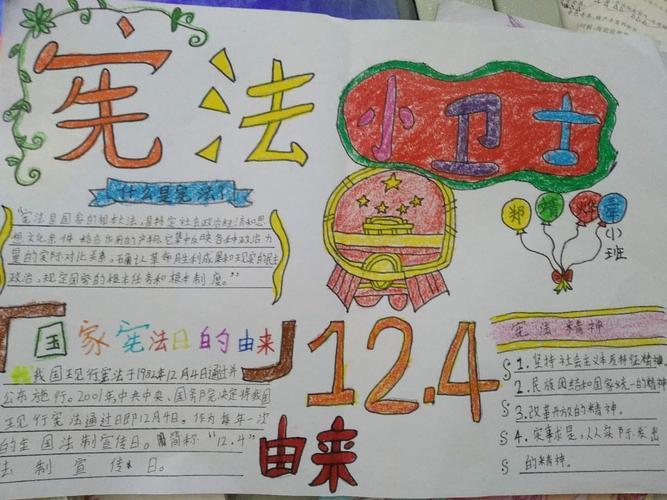 宪法
小卫士
什么是宪法？
"宪法是国家的根本大法，是特定社会政治经济和思
想文化条件综合作用的产物，它集中反映各种政治力
量的实际对比关系，确认革命胜利成果和现实的民主
政治，规定国家的根本任务和根本制度。"
小
班
国家宪法日的由来
我国现行宪法于1982年12月4日通过并
公布施行。2001年中央中央、国务院决定将我国
现行宪法通过日即12月4日，作为每年一次
的全国法制宣传日。简称"12.4"
法制宣传日。
12.4
由来
宪法精神
1.坚持社会主义本质特征精神
2.民族团结和国家统一的精神
3.改革开放的精神。
4.实事求是，从实际出发
的精神。